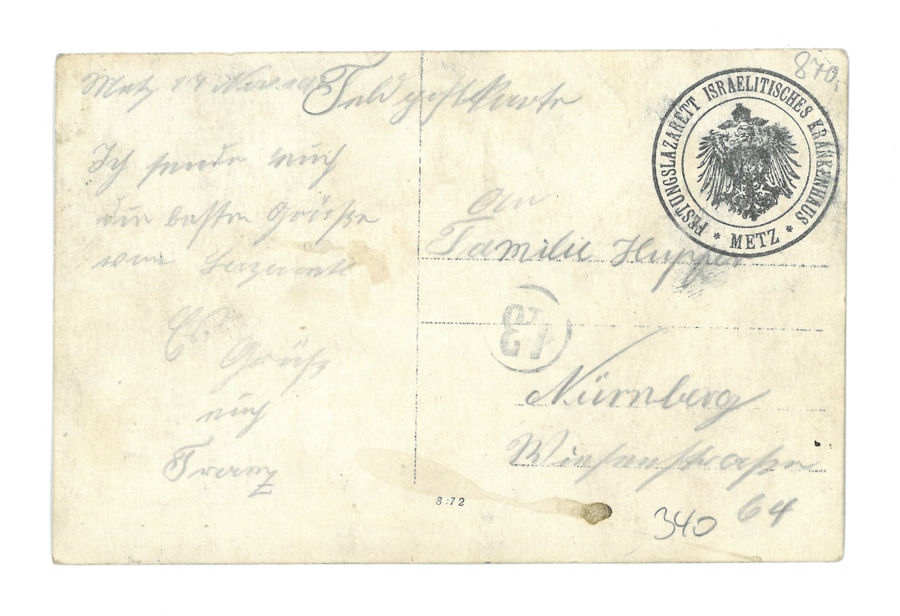 Metz 17 Nov.
Feldpostkarte
870.
FESTUNGSLAZARETT ISRAELITISCHES KRANKENHAUS
* METZ *
Ich sende euch
die beste Grüße
vom Lazarett
Es
Grüßt
euch
Franz
An
Familie
13
Nürnberg
Wiesenstraße
64
340
8:72